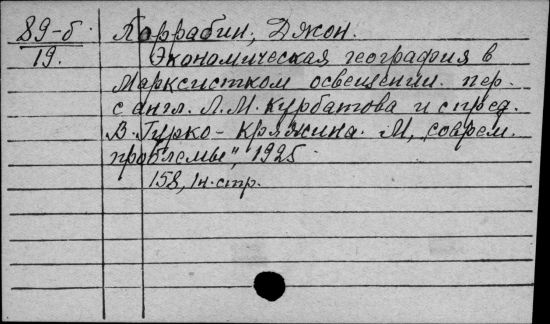 89-б Хоррабин, Джон.
19. Экономическая география в
марксистком освещении. пер.
с англ. Л.М. Курбатова и с пред.
В. Гурко-Кряжина. М, „соврем.
проблемы", 1925.
158, 1н. стр.